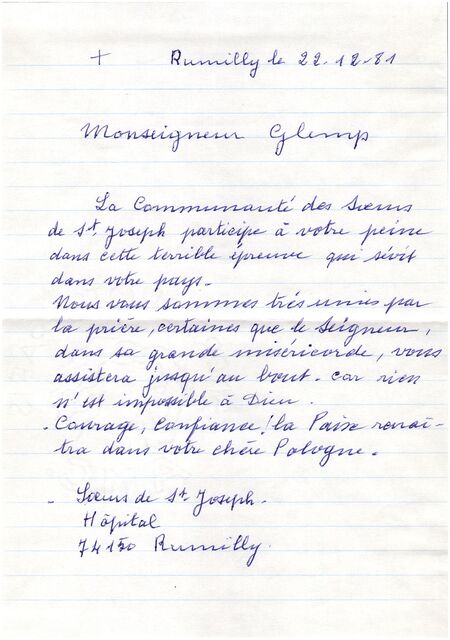 + Rumilly le 22.12.81
Monseigneur Glemp
La Communauté des Sœurs
de St. Joseph participe à votre peine
dans cette terrible épreuve qui sévit
dans votre pays.
Nous vous sommes très unies par
la prière, certaines que le Seigneur,
dans sa grande miséricorde, vous
assistera jusqu'au bout. car rien
n'est impossible à Dieu.
- Courage, confiance! la Paix renaî-
tra dans votre chère Pologne.
- Sœurs de St. Joseph.
Hôpital
74150 Rumilly.